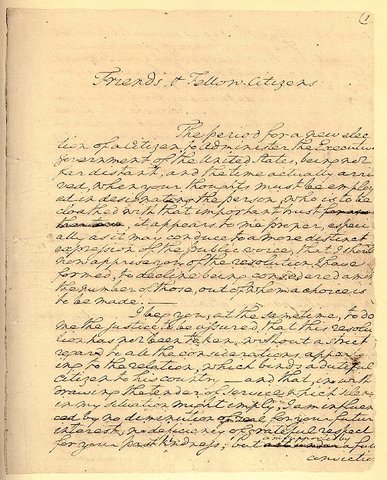 1
Friends, & Fellow-Citizens
The period for a new elec
tion of a Citizen, to administer the Executive
government of the United States, being not
far distant, and the time actually arri
ved, when your thoughts must be employ
ed in designating the person, who is to be
cloathed with that important trust
, it appears to me proper, especi
ally, as it may conduce to a more distinct
expression of the public voice, that I should
now apprise you of the resolution I have
formed, to decline being considered among
the number of those, out of whom a choice is
to be made.—
I beg you, at the same time, to do
me the justice to be assured, that this resolu
tion has not been taken, without a strict
regard to all the considerations appertain
ing to the relation, which binds a dutiful
Citizen to his country — and that, in with
drawing the tender of service which silence
in my situation might imply, I am influen
ced by no diminution of zeal for your future
interest, no deficiency of grateful respect
for your past kindness; but am supported by a full
conviction